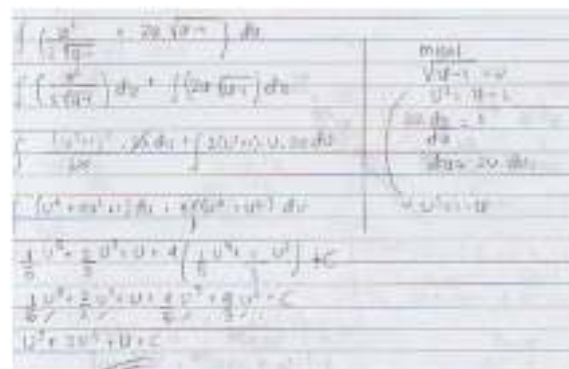 ∫ ( x² / 2√(x-1) + 2x √(x-1) ) dx
∫ ( x² / 2√(x-1) ) dx + ∫ (2x √(x-1)) dx
∫ (u²+1)² / 2u · 2u du + ∫ 2(u²+1) · u · 2u du
∫ (u⁴ + 2u² + 1) du + 4∫ (u⁴ + u²) du
1/5 u⁵ + 2/3 u³ + u + 4 ( 1/5 u⁵ + 1/3 u³ ) + C
1/5 u⁵ + 2/3 u³ + u + 4/5 u⁵ + 4/3 u³ + C
u⁵ + 2u³ + u + C
misal
√(x-1) = u
u² = x-1
dx = 2u du